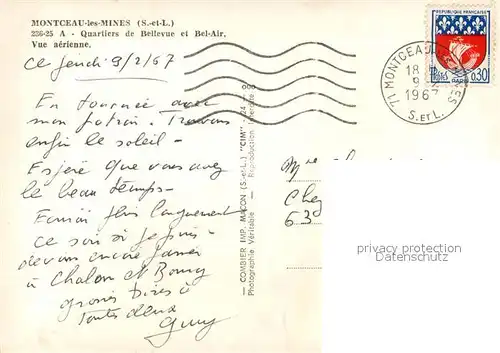 MONTCEAU-les-MINES (S.-et-L.)
236-25 A - Quartiers de Bellevue et Bel-Air.
Vue aérienne.
Ce jeudi 9/2/67
En tournée avec
mon patron. Trouvons
enfin le soleil -
Espère que vous avez
le beau temps -
plus longuement
ce soir si je puis -
devons encore
à Chalon et Bourg
grosses bises à
toutes deux
Guy
RÉPUBLIQUE FRANÇAISE
POSTES
PARIS
0,30
71 MONTCEAU MINES
18
9
1967
S. ET L.
COMBIER IMP. MACON (S.-et-L.) "CIM"
Photographie Véritable - Reproduction interdite
Mme
Chez
63
privacy protection
Datenschutz